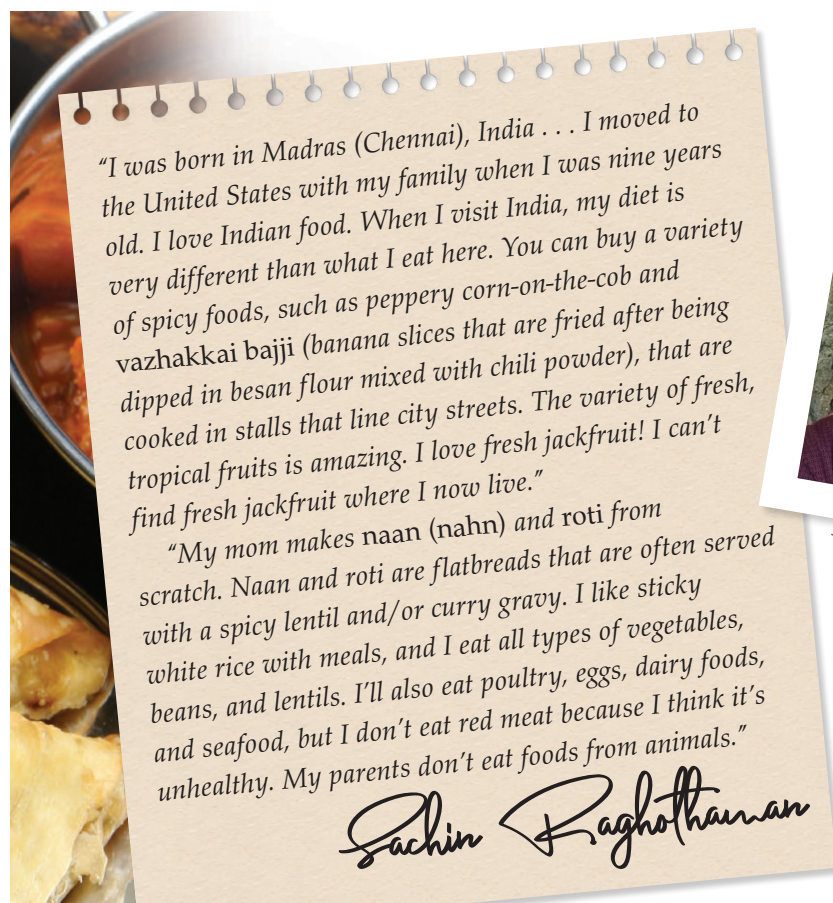 “I was born in Madras (Chennai), India . . . I moved to
the United States with my family when I was nine years
old. I love Indian food. When I visit India, my diet is
very different than what I eat here. You can buy a variety
of spicy foods, such as peppery corn-on-the-cob and
vazhakkai bajji (banana slices that are fried after being
dipped in besan flour mixed with chili powder), that are
cooked in stalls that line city streets. The variety of fresh,
tropical fruits is amazing. I love fresh jackfruit! I can’t
find fresh jackfruit where I now live.”
“My mom makes naan (nahn) and roti from
scratch. Naan and roti are flatbreads that are often served
with a spicy lentil and/or curry gravy. I like sticky
white rice with meals, and I eat all types of vegetables,
beans, and lentils. I’ll also eat poultry, eggs, dairy foods,
and seafood, but I don’t eat red meat because I think it’s
unhealthy. My parents don’t eat foods from animals.”
Sachin Raghothaman